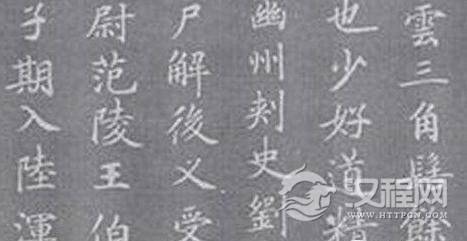 雲三角髻餘
也少好道精
幽州刾史劉
尸解後又受
尉范陵王伯
子期入陸渾
汉程网
WWW.HTTPCN.COM